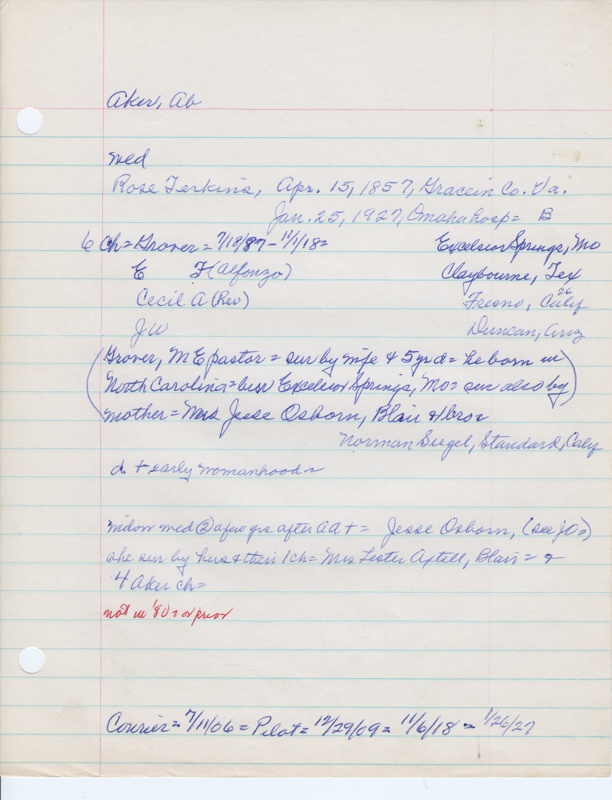 Aker, Ab
med
Rose Perkins, Apr. 15, 1857, Co. Va.
Jan. 25, 1927, Omaha hosp = B
6 Ch = Grover = 7/18/87 - 11/1/18 = Excelsior Springs, Mo
E F (Alfonzo) Claybourne, Tex
Cecil A (Rev) Fresno, Calif 26
J W Duncan, Ariz
(Grover, M E pastor = sur by wife & 5 yr d = he born in
North Carolina = bur Excelsior Springs, Mo = sur also by)
mother = Mrs Jesse Osborn, Blair & bro =
Norman Siegel, Standard, Calif
d + early womanhood =
widow med (2) a few yrs after Ad + = Jesse Osborn, (see JO =)
she sur by hus & their 1 ch = Mrs Lester Axtell, Blair = &
4 Aker ch =
not in '80 = or prior
Courier = 7/11/06 = Pilot = 12/29/09 = 11/6/18 = 1/26/27